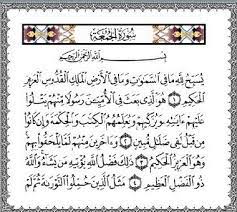 سُورَةُ الْجُمُعَةِ
بِسْمِ اللَّهِ الرَّحْمَٰنِ الرَّحِيمِ
يُسَبِّحُ لِلَّهِ مَا فِي السَّمَاوَاتِ وَمَا فِي الْأَرْضِ الْمَلِكِ الْقُدُّوسِ الْعَزِيزِ
الْحَكِيمِ ۝١ هُوَ الَّذِي بَعَثَ فِي الْأُمِّيِّينَ رَسُولًا مِنْهُمْ يَتْلُوا
عَلَيْهِمْ آيَاتِهِ وَيُزَكِّيهِمْ وَيُعَلِّمُهُمُ الْكِتَابَ وَالْحِكْمَةَ وَإِنْ كَانُوا
مِنْ قَبْلُ لَفِي ضَلَالٍ مُبِينٍ ۝٢ وَآخَرِينَ مِنْهُمْ لَمَّا يَلْحَقُوا بِهِمْ
وَهُوَ الْعَزِيزُ الْحَكِيمُ ۝٣ ذَٰلِكَ فَضْلُ اللَّهِ يُؤْتِيهِ مَنْ يَشَاءُ وَاللَّهُ
ذُو الْفَضْلِ الْعَظِيمِ ۝٤ مَثَلُ الَّذِينَ حُمِّلُوا التَّوْرَاةَ ثُمَّ لَمْ